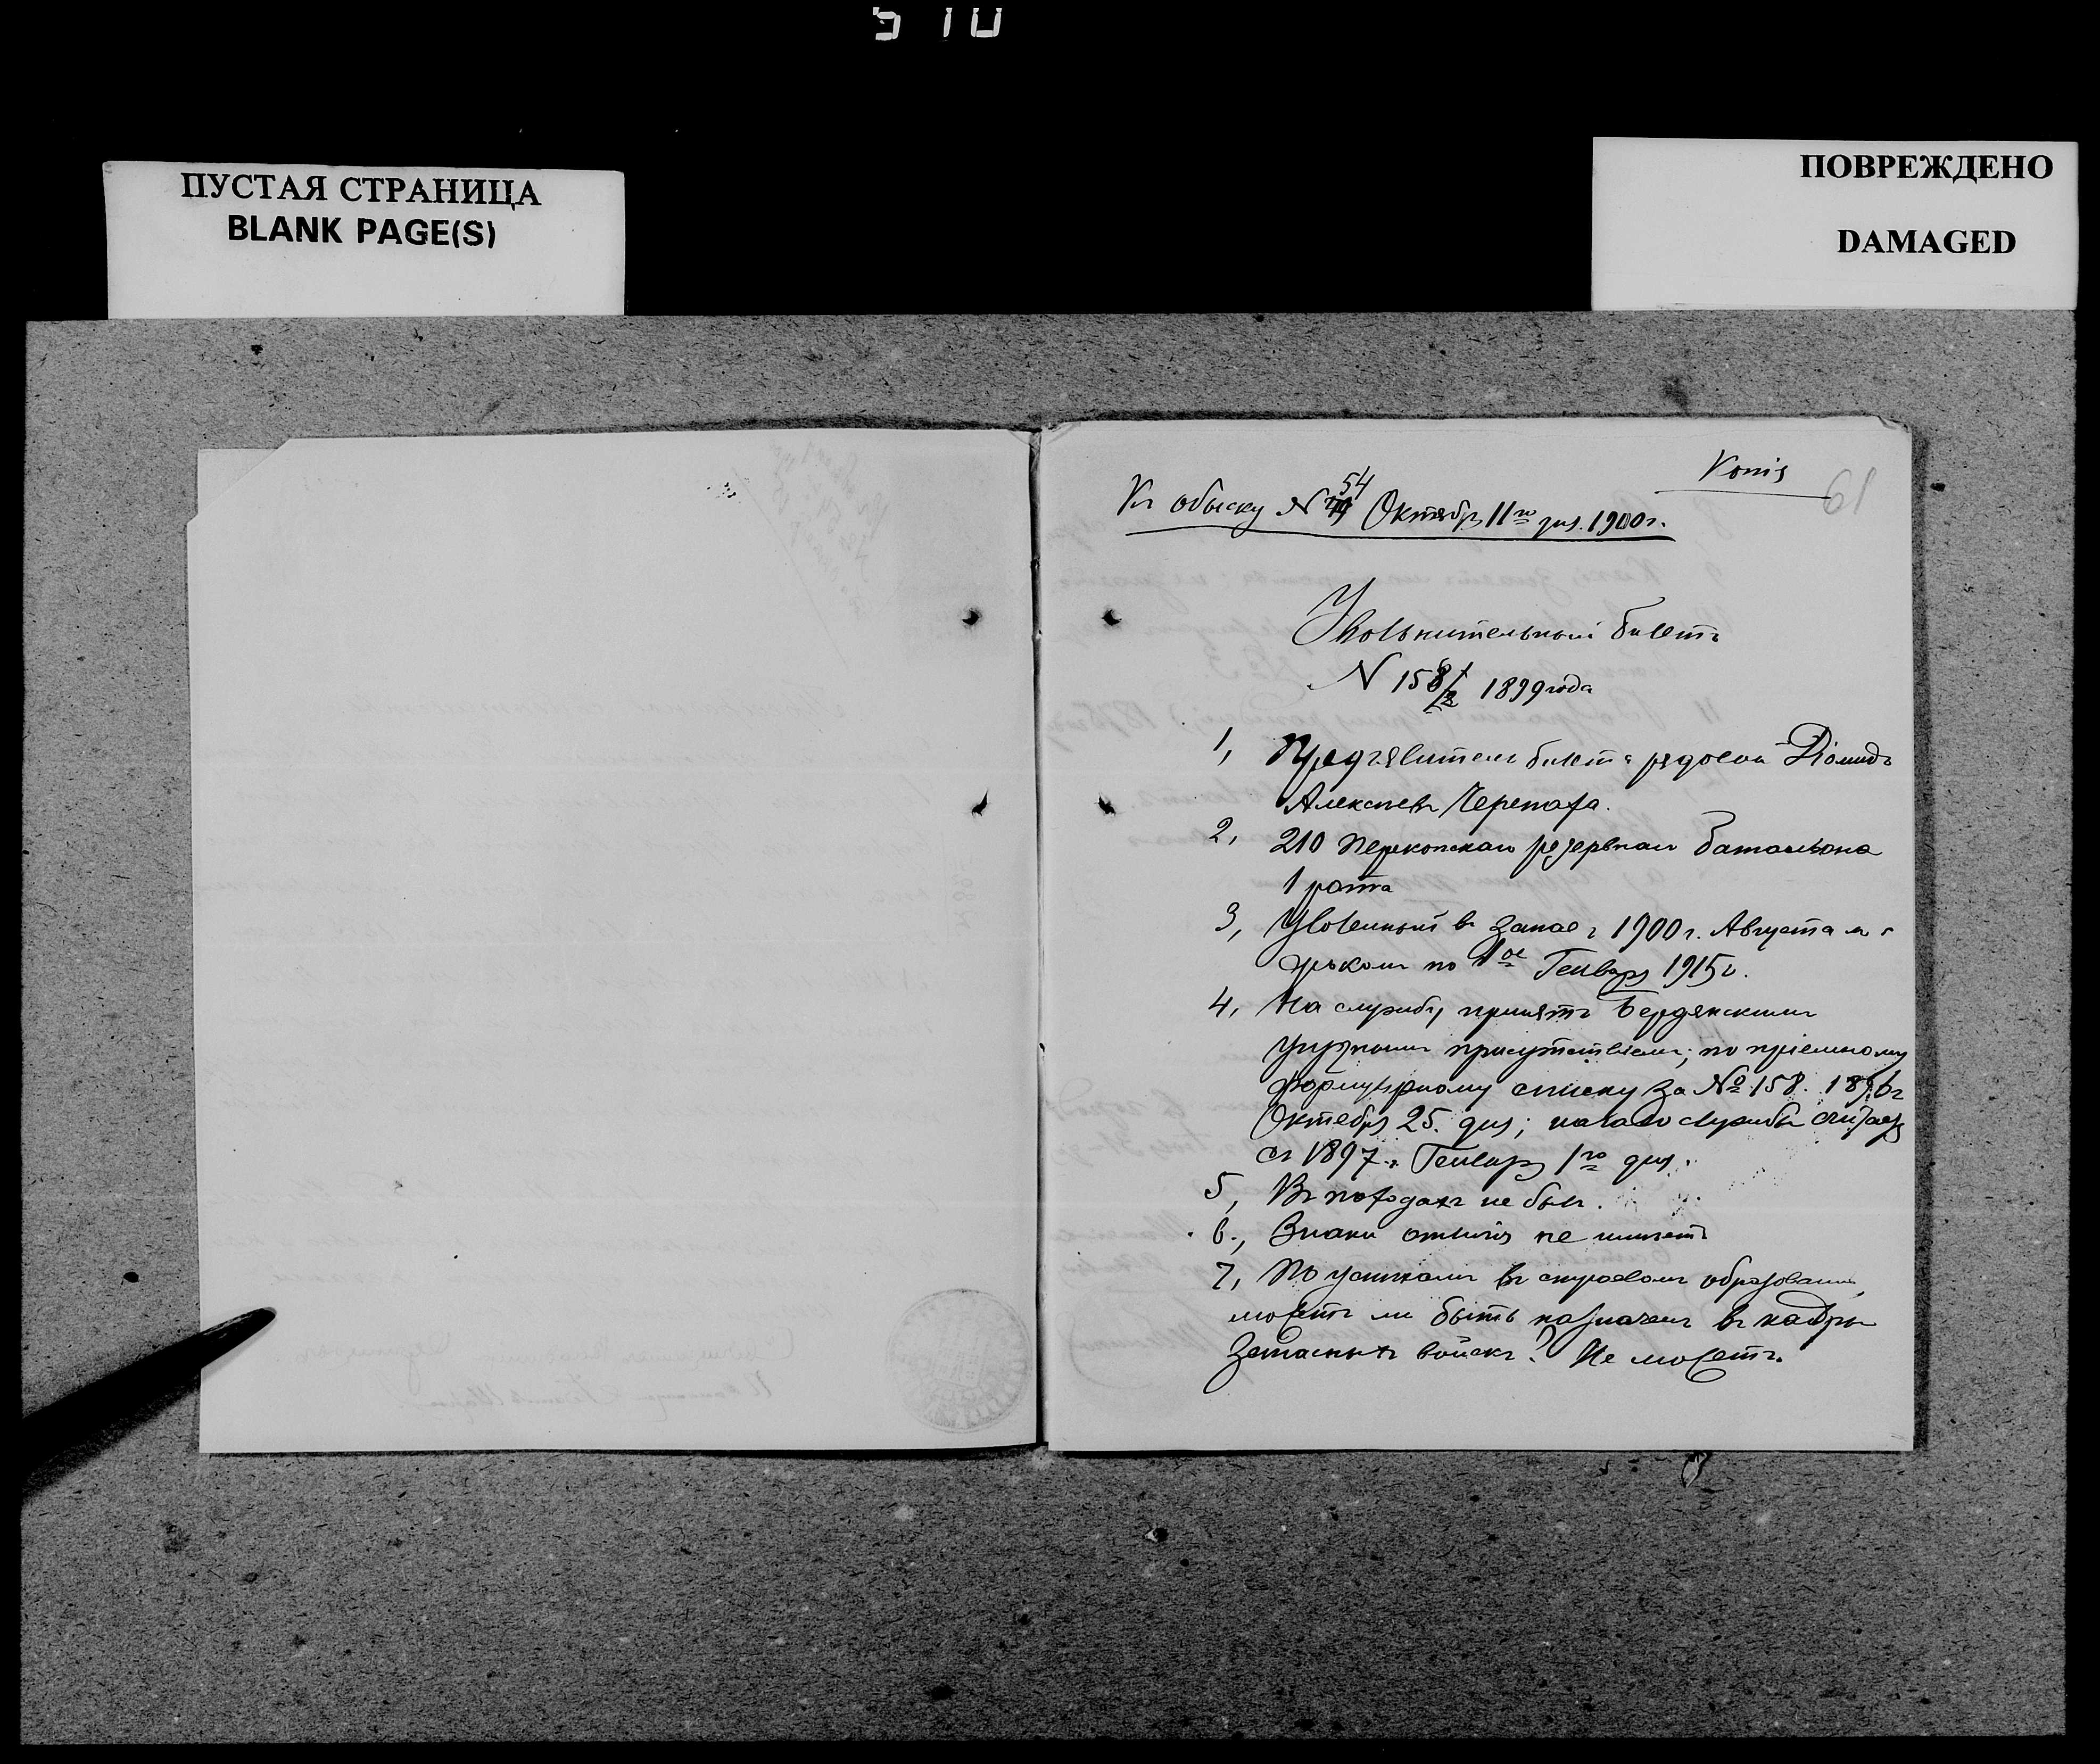 510
ПУСТАЯ СТРАНИЦА
BLANK PAGE(S)
ПОВРЕЖДЕНО
DAMAGED
Копія
61
Къ обыску № 54 Октября 11го дня 1900г.
Увольнительный билетъ
N 158/2 1899 года
1, Предъявитель билета рядовой Діомидъ
Алексѣевъ Черепаха.
2, 210 Перекопскаго резервнаго баталіона
1 рота
3, Уволенный въ запасъ 1900 г. Августа
срокомъ по 1ое Генваря 1915г.
4, На службу принятъ Бердянскимъ
уѣзднымъ присутствіемъ; по пріемному
формулярному списку за № 158. 1896г
Октября 25. дня; начало службы считать
съ 1897 г. Генваря 1го дня.
5, Въ походахъ не былъ.
6., Знаки отличія не имѣетъ
7, По успѣхамъ въ строевомъ образованіи
можетъ ли быть назначенъ въ кадры
запасныхъ войскъ? Не можетъ.